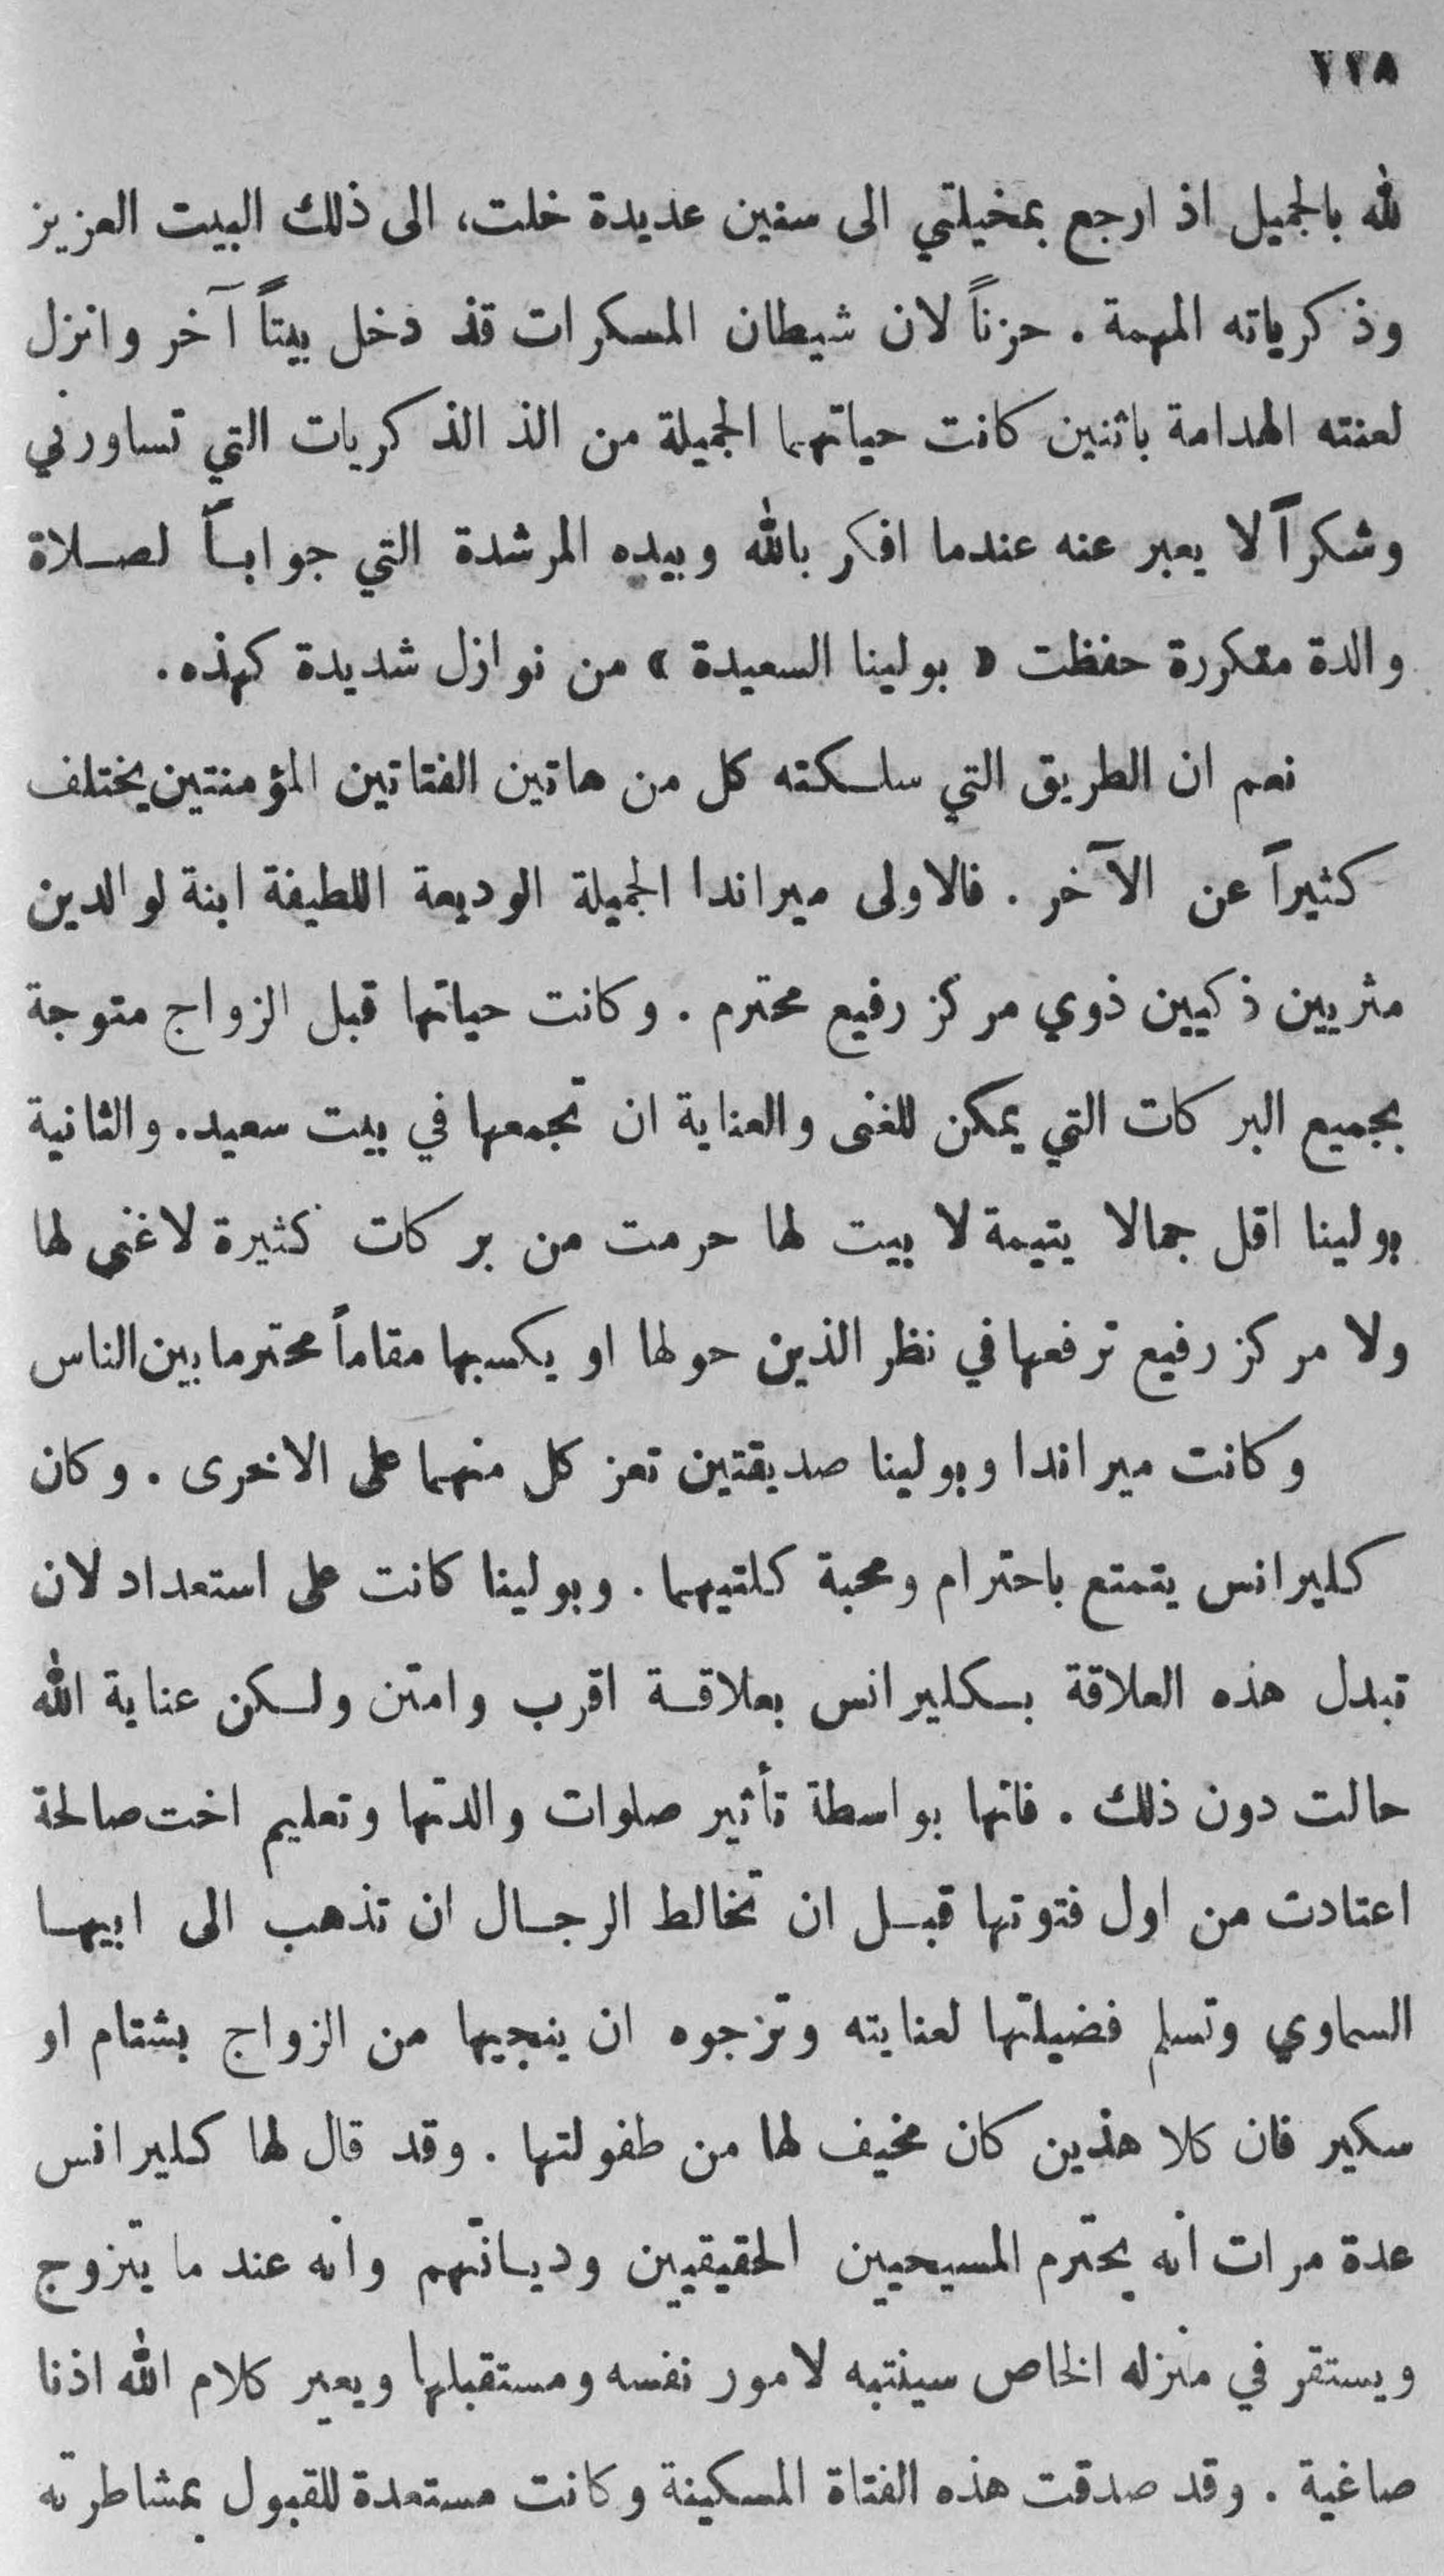 ٢٢٨
لله بالجميل اذ ارجع بمخيلتي الى سنين عديدة خلت، الى ذلك البيت العزيز
وذكرياته المهمة . حزناً لان شيطان المسكرات قد دخل بيتاً آخر وانزل
لعنته الهدامة باثنين كانت حياتهما الجميلة من الذ الذكريات التي تساورني
وشكراً لا يعبر عنه عندما افكر بالله وبيده المرشدة التي جواباً لصلاة
والدة متكررة حفظت « بولينا السعيدة » من نوازل شديدة كهذه .
نعم ان الطريق التي سلكته كل من هاتين الفتاتين المؤمنتين يختلف
كثيراً عن الآخر . فالاولى ميراندا الجميلة الوديعة اللطيفة ابنة لوالدين
مثريين ذكيين ذوي مركز رفيع محترم . وكانت حياتها قبل الزواج متوجة
بجميع البركات التي يمكن للغنى والعناية ان تجمعها في بيت سعيد . والثانية
بولينا اقل جمالا يتيمة لا بيت لها حرمت من بركات كثيرة لا غنى لها
ولا مركز رفيع ترفعها في نظر الذين حولها او يكسبها مقاماً محترما بين الناس
وكانت ميراندا وبولينا صديقتين تعز كل منهما على الاخرى . وكان
كليرانس يتمتع باحترام ومحبة كلتيهما . وبولينا كانت على استعداد لان
تبدل هذه العلاقة بكليرانس بعلاقة اقرب وامتن ولكن عناية الله
حالت دون ذلك . فانها بواسطة تأثير صلوات والدتها وتعليم اخت صالحة
اعتادت من اول فتوتها قبل ان تخالط الرجال ان تذهب الى ابيها
السماوي وتسلم فضيلتها لعنايته وترجوه ان ينجيها من الزواج بشتام او
سكير فان كلا هذين كان مخيف لها من طفولتها . وقد قال لها كليرانس
عدة مرات انه يحترم المسيحيين الحقيقيين وديانتهم وانه عند ما يتزوج
ويستقر في منزله الخاص سينتبه لامور نفسه ومستقبلها ويعير كلام الله اذنا
صاغية . وقد صدقت هذه الفتاة المسكينة وكانت مستعدة للقبول بمشاطرته